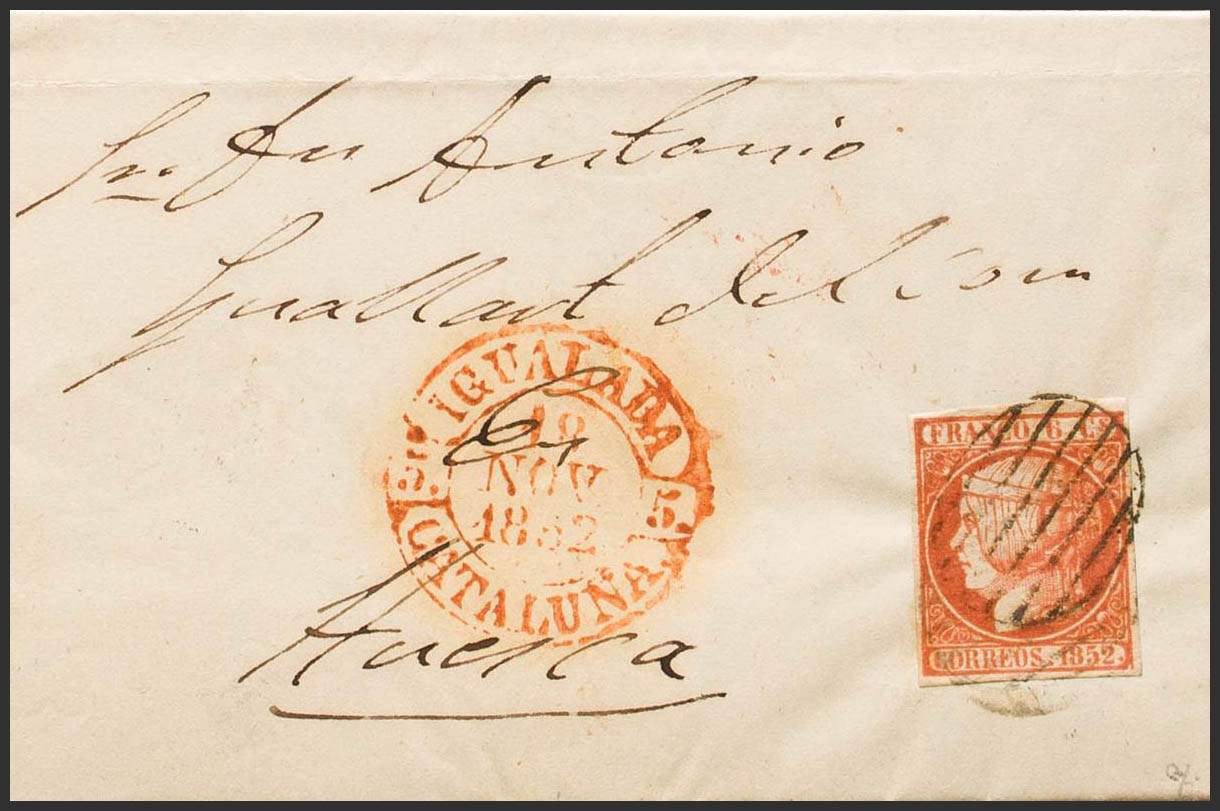 Sr. Dn Antonio
Guallart del Com
En
Huesca
IGUALADA
18
NOV
1852
5. 5.
CATALUÑA.
FRANCO 6 Cs
CORREOS 1852